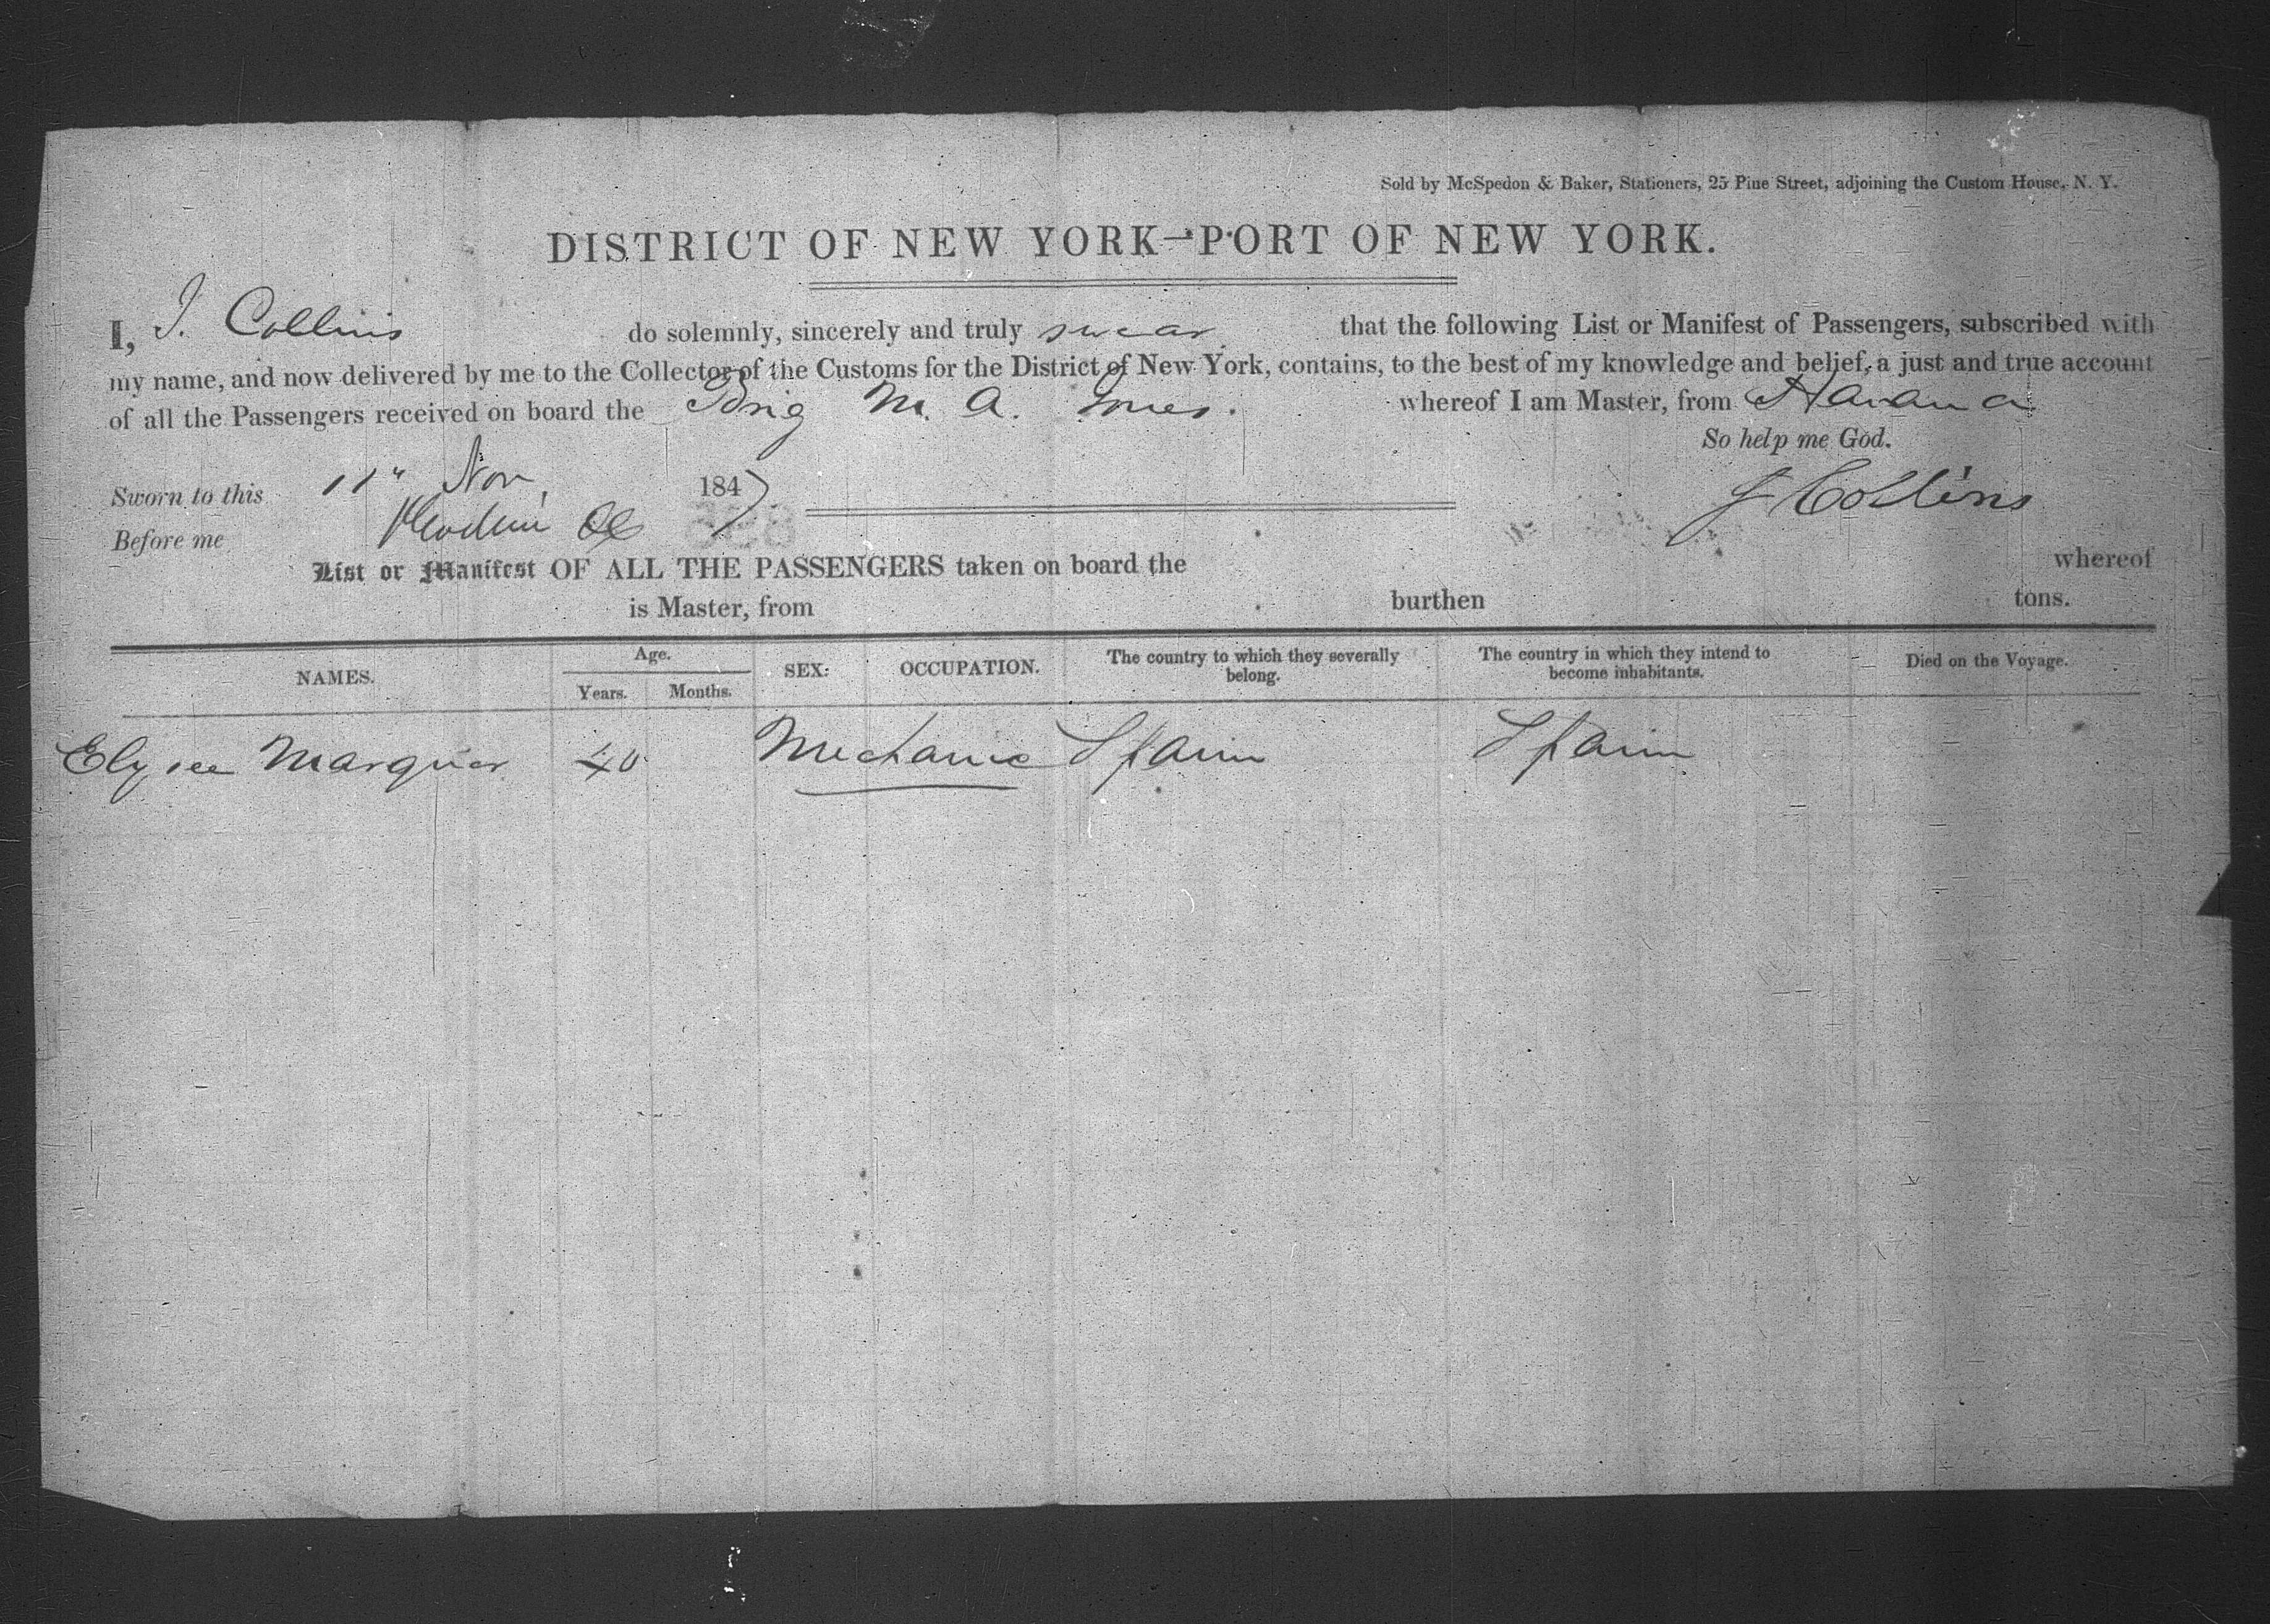 Sold by McSpedon & Baker, Stationers, 25 Pine Street, adjoining the Custom House, N. Y.
DISTRICT OF NEW YORK—PORT OF NEW YORK.
I, J. Collins do solemnly, sincerely and truly swear that the following List or Manifest of Passengers, subscribed with
my name, and now delivered by me to the Collector of the Customs for the District of New York, contains, to the best of my knowledge and belief, a just and true account
of all the Passengers received on board the Brig M. A. Jones. whereof I am Master, from Havana
So help me God.
Sworn to this 11" Nov 1847
J Collins
Before me
List or Manifest OF ALL THE PASSENGERS taken on board the whereof
is Master, from burthen tons.
NAMES. Age. Years. Months. SEX: OCCUPATION. The country to which they severally belong. The country in which they intend to become inhabitants. Died on the Voyage.
Elysee Marquer 40 Mechanic Spain Spain